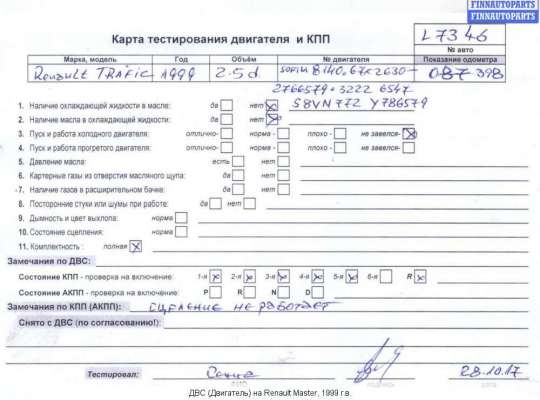 FINNAUTOPARTS
FINNAUTOPARTS
Карта тестирования двигателя и КПП
L7346
№ авто
Марка, модель Год Объём № двигателя Показание одометра
Renault TRAFIC 1999 2.5d 8140.67K2630- 087 398
2766579+3222 6547
S8VN772 Y786579
1. Наличие охлаждающей жидкости в масле: да нет
2. Наличие масла в охлаждающей жидкости: да нет
3. Пуск и работа холодного двигателя: отлично- норма - плохо - не завелся-
4. Пуск и работа прогретого двигателя: отлично- норма - плохо - не завелся-
5. Давление масла: есть нет
6. Картерные газы из отверстия масляного щупа: да нет
7. Наличие газов в расширительном бачке: да нет
8. Посторонние стуки или шумы при работе: да нет
9. Дымность и цвет выхлопа: норма
10. Состояние сцепления: норма
11. Комплектность: полная
Замечания по ДВС:
Состояние КПП - проверка на включение: 1-я 2-я 3-я 4-я 5-я 6-я R
Состояние АКПП - проверка на включение: P R N D
Замечания по КПП (АКПП): СЦЕПЛЕНИЕ НЕ РАБОТАЕТ
Снято с ДВС (по согласованию!):
Тестировал: 28.10.17
ФИО подпись дата
ДВС (Двигатель) на Renault Master, 1999 г.в.